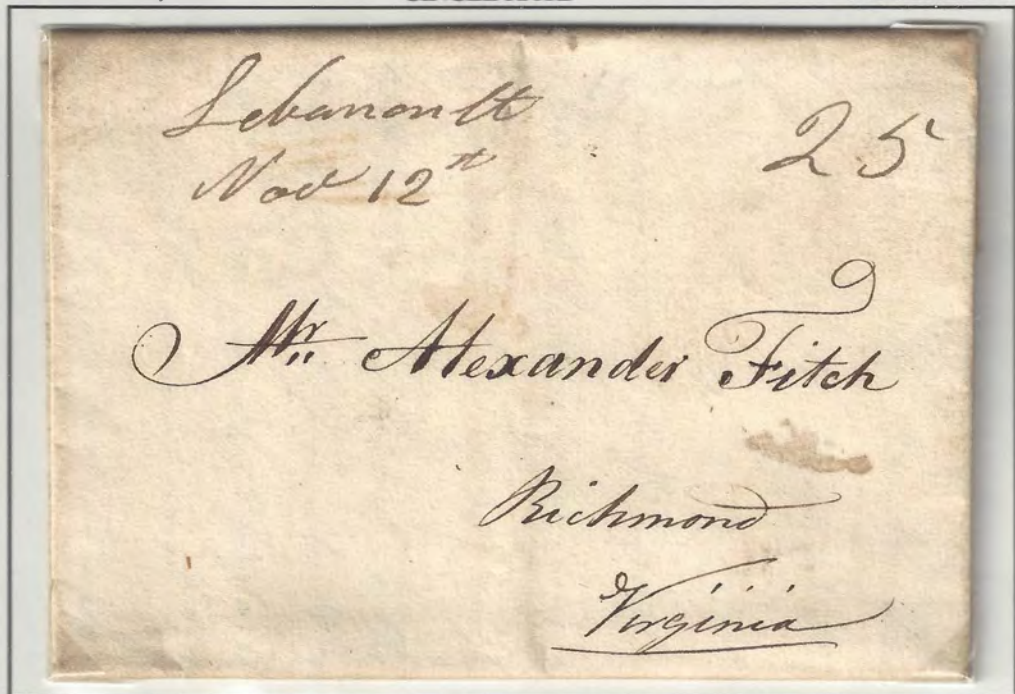 Lebanon Ct
Nov 12th 25
Mr. Alexander Fitch
Richmond
Virginia